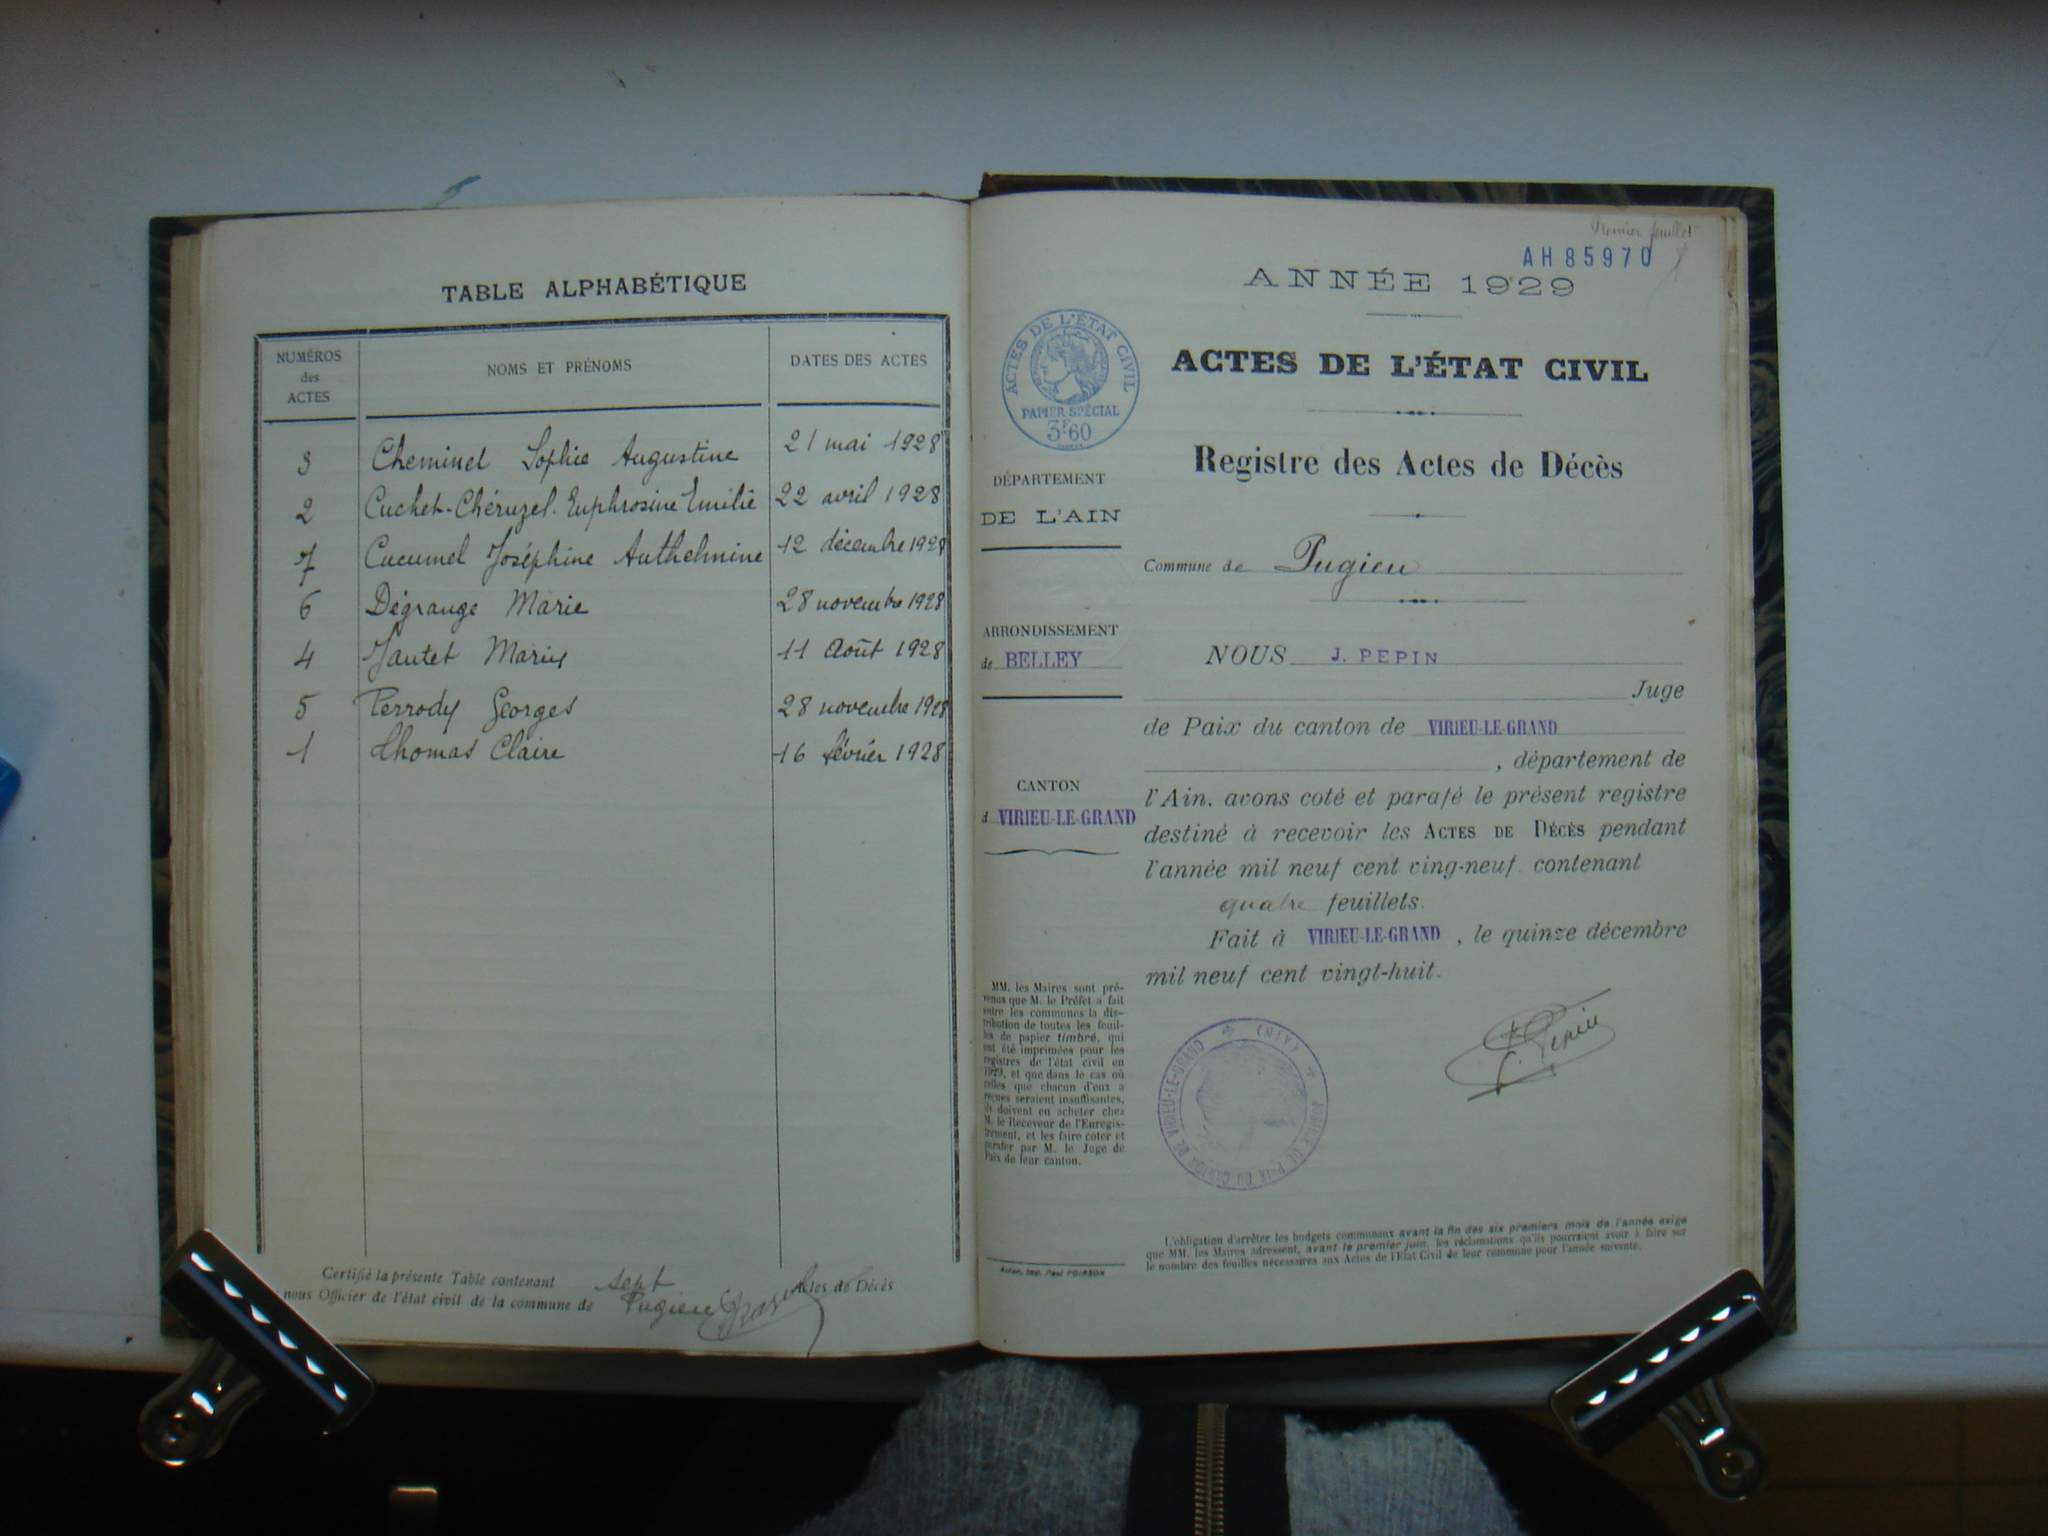 TABLE ALPHABÉTIQUE
NUMÉROS des ACTES
NOMS ET PRÉNOMS
DATES DES ACTES
3 Cheminel Sophie Augustine 21 mai 1928
2 Cuchet-Chéruzel Euphrosine Emilie 22 avril 1928
7 Cucumel Joséphine Anthelmine 12 décembre 1928
6 Dégrange Marie 28 novembre 1928
4 Jantet Marius 11 Août 1928
5 Perrody Georges 28 novembre 1928
1 Thomas Claire 16 février 1928
Certifié la présente Table contenant sept Actes de Décès
nous Officier de l'état civil de la commune de Pugieu
Premier feuillet
AH 85970
ANNÉE 1929
ACTES DE L'ÉTAT CIVIL
PAPIER SPÉCIAL
3F60
ACTES DE L'ÉTAT CIVIL
Registre des Actes de Décès
DÉPARTEMENT
DE L'AIN
Commune de Pugieu
ARRONDISSEMENT
de BELLEY
NOUS J. PEPIN
Juge
de Paix du canton de VIRIEU-LE-GRAND
, département de
CANTON
d VIRIEU-LE-GRAND
l'Ain. avons coté et parafé le présent registre
destiné à recevoir les ACTES DE DÉCÈS pendant
l'année mil neuf cent ving-neuf contenant
quatre feuillets.
Fait à VIRIEU-LE-GRAND , le quinze décembre
mil neuf cent vingt-huit.
MM. les Maires sont pré-
venus que M. le Préfet a fait
entre les communes la dis-
tribution de toutes les feuil-
les de papier timbré, qui
ont été imprimées pour les
registres de l'état civil en
1929, et que dans le cas où
celles que chacun d'eux a
reçues seraient insuffisantes,
ils doivent en acheter chez
M. le Receveur de l'Enregis-
trement, et les faire coter et
parafer par M. le Juge de
Paix de leur canton.
J. Pepin
JUSTICE DE PAIX DU CANTON DE VIRIEU-LE-GRAND (AIN)
L'obligation d'arrêter les budgets communaux avant la fin des six premiers mois de l'année exige
que MM. les Maires adressent, avant le premier juin, les réclamations qu'ils pourraient avoir à faire sur
le nombre des feuilles nécessaires aux Actes de l'Etat Civil de leur commune pour l'année suivante.
Imp. Paul POISSON